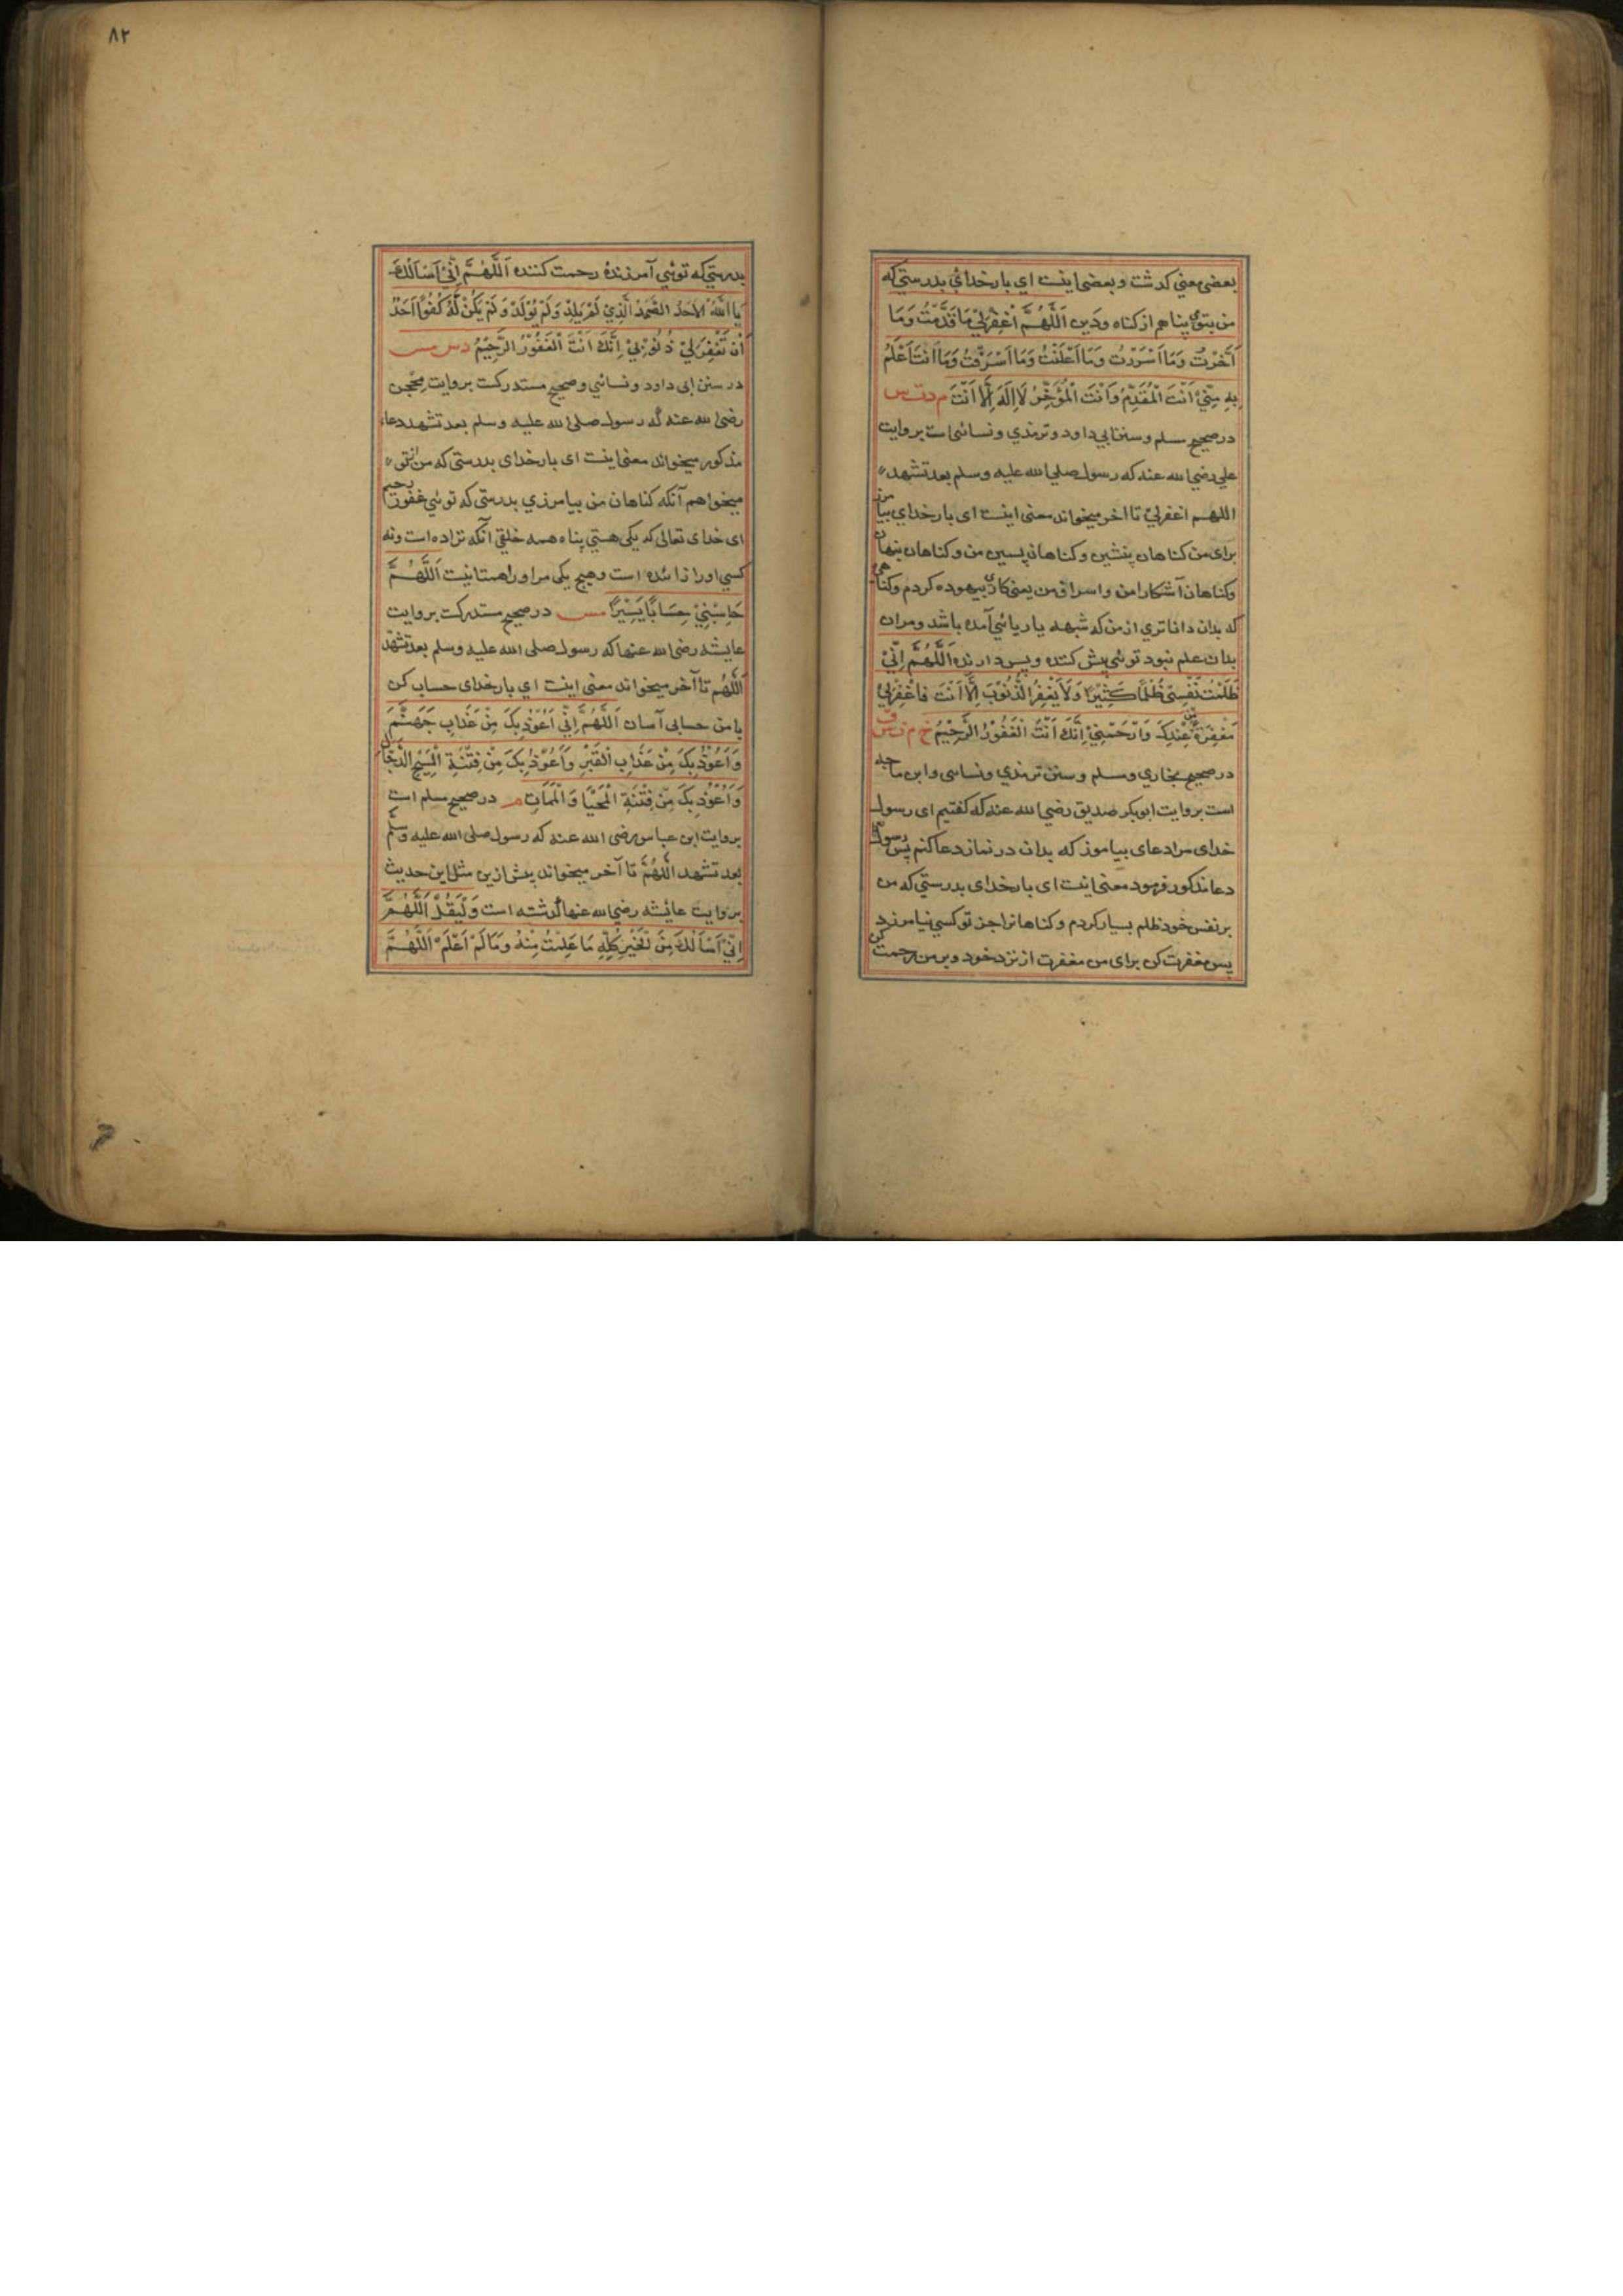 بعضی معنی کذشت و بعضی اینست ای بار خدای بدرستی که
من بتو می پناهم از کناه و دین اَللّٰهُمَّ اغْفِرْ لِیْ مَا قَدَّمْتُ وَمَا
اَخَّرْتُ وَمَا اَسْرَرْتُ وَمَا اَعْلَنْتُ وَمَا اَسْرَفْتُ وَمَا اَنْتَ اَعْلَمُ
بِهِ مِنِّیْ اَنْتَ الْمُقَدِّمُ وَاَنْتَ الْمُؤَخِّرُ لَا اِلٰهَ اِلَّا اَنْتَ م د ت س
در صحیح مسلم و سنن ابی داود و ترمذی و نسائی است بروایت
علی رضی الله عنه که رسول صلی الله علیه وسلم بعد تشهد
اللهم اغفرلی تا اخر میخواند معنی اینست ای بار خدای بیامرز
برای من کناهان پیشین و کناهان پسین من و کناهان پنهان
وکناهان آشکار من و اسراف من یعنی کار بیهوده کردم وکناهی
که بدان داناتری از من که شبهه یا ریائی آمده باشد و مرا ن
بدان علم نبود توئی پیش کننده و پس دارنده اَللّٰهُمَّ اِنِّیْ
ظَلَمْتُ نَفْسِیْ ظُلْمًا کَثِیْرًا وَلَا یَغْفِرُ الذُّنُوْبَ اِلَّا اَنْتَ فَاغْفِرْ لِیْ
مَغْفِرَةً مِّنْ عِنْدِکَ وَارْحَمْنِیْ اِنَّکَ اَنْتَ الْغَفُوْرُ الرَّحِیْمُ خ م ت س ق
در صحیح بخاری و مسلم و سنن ترمذی و نسائی و ابن ماجه
است بروایت ابوبکر صدیق رضی الله عنه که کفتیم ای رسول
خدای مرا دعای بیاموز که بدان در نماز دعا کنم پس رسول
دعا مذکور فرمود معنی اینست ای بار خدای بدرستی که من
بر نفس خود ظلم بسیار کردم و کناهانرا جز تو کسی نیامرزد
پس مغفرت کن برای من مغفرت از نزد خود و بر من رحمت کن
٨٢
بدرستی که توئی آمرزندهٔ رحمت کننده اَللّٰهُمَّ اِنِّیْ اَسْاَلُکَ
یَا اَللّٰهُ الْاَحَدُ الصَّمَدُ الَّذِیْ لَمْ یَلِدْ وَلَمْ یُوْلَدْ وَلَمْ یَکُنْ لَّهُ کُفُوًا اَحَدٌ
اَنْ تَغْفِرَ لِیْ ذُنُوْبِیْ اِنَّکَ اَنْتَ الْغَفُوْرُ الرَّحِیْمُ د س مس
در سنن ابی داود و نسائی و صحیح مستدرکست بروایت محجن
رضی الله عنه که رسول صلی الله علیه وسلم بعد تشهد دعاء
مذکور میخواند معنی اینست ای بار خدای بدرستی که من از تو
میخواهم آنکه کناهان من بیامرزی بدرستی که توئی غفور رحیم
ای خدای تعالی که یکی هستی پناه همه خلقی آنکه نزاده است ونه
کسی اورا زائده است و هیچ یکی مر اورا همتا نیست اَللّٰهُمَّ
حَاسِبْنِیْ حِسَابًا یَّسِیْرًا مس در صحیح مستدرکست بروایت
عایشه رضی الله عنها که رسول صلی الله علیه وسلم بعد تشهد
اَللّٰهُمَّ تا آخر میخواند معنی اینست ای بار خدای حساب کن
با من حسابی آسان اَللّٰهُمَّ اِنِّیْ اَعُوْذُ بِکَ مِنْ عَذَابِ جَهَنَّمَ
وَاَعُوْذُ بِکَ مِنْ عَذَابِ الْقَبْرِ وَاَعُوْذُ بِکَ مِنْ فِتْنَةِ الْمَسِیْحِ الدَّجَّالِ
وَاَعُوْذُ بِکَ مِنْ فِتْنَةِ الْمَحْیَا وَالْمَمَاتِ م در صحیح مسلم است
بروایت ابن عباس رضی الله عنه که رسول صلی الله علیه وسلم
بعد تشهد اَللّٰهُمَّ تا آخر میخواند پیش ازین مثل این حدیث
بروایت عائشه رضی الله عنها کذشته است وَلْیَقُلْ اَللّٰهُمَّ
اِنِّیْ اَسْاَلُکَ مِنَ الْخَیْرِ کُلِّهِ مَا عَلِمْتُ مِنْهُ وَمَا لَمْ اَعْلَمْ اَللّٰهُمَّ